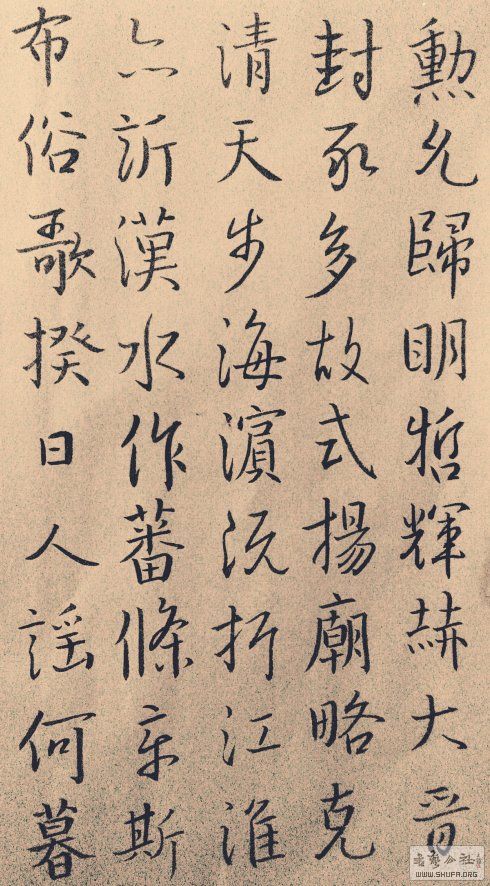 勲允歸明哲輝赫大晉
封豕多故式揚廟略克
清天步海濱既折江淮
亦沂漢水作蕃條章斯
布俗歌揆日人謠何暮
WWW.SHUFA.ORG